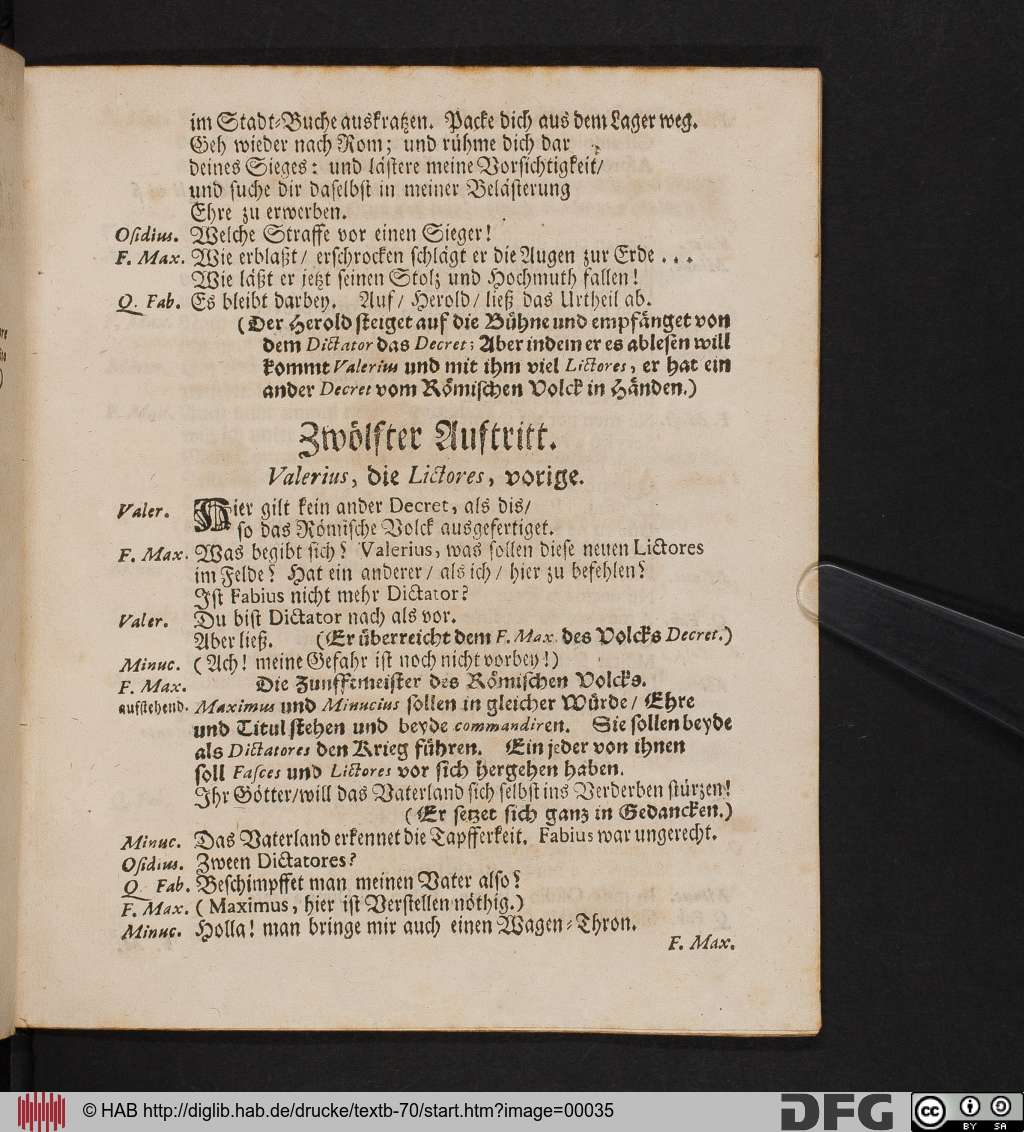 im Stadt-Buche auskratzen. Packe dich aus dem Lager weg.
Geh wieder nach Rom; und rühme dich dar
deines Sieges: und lästere meine Vorsichtigkeit/
und suche dir daselbst in meiner Belästerung
Ehre zu erwerben.
Osidius. Welche Straffe vor einen Sieger!
F. Max. Wie erblaßt/ erschrocken schlägt er die Augen zur Erde...
Wie läßt er jetzt seinen Stolz und Hochmuth fallen!
Q. Fab. Es bleibt darbey. Auf/ Herold/ ließ das Urtheil ab.
(Der Herold steiget auf die Bühne und empfänget von
dem Dictator das Decret; Aber indem er es ablesen will
kommt Valerius und mit ihm viel Lictores, er hat ein
ander Decret vom Römischen Volck in Händen.)
Zwölfter Auftritt.
Valerius, die Lictores, vorige.
Valer. Hier gilt kein ander Decret, als dis/
so das Römische Volck ausgefertiget.
F. Max. Was begibt sich? Valerius, was sollen diese neuen Lictores
im Felde? Hat ein anderer/ als ich/ hier zu befehlen?
Ist Fabius nicht mehr Dictator?
Valer. Du bist Dictator nach als vor.
Aber ließ. (Er überreicht dem F. Max. des Volcks Decret.)
Minuc. (Ach! meine Gefahr ist noch nicht vorbey!)
F. Max. Die Zunfftmeister des Römischen Volcks.
aufstehend. Maximus und Minucius sollen in gleicher Würde/ Ehre
und Titul stehen und beyde commandiren. Sie sollen beyde
als Dictatores den Krieg führen. Ein jeder von ihnen
soll Fasces und Lictores vor sich hergehen haben.
Ihr Götter/will das Vaterland sich selbst ins Verderben stürzen!
(Er setzet sich ganz in Gedancken.)
Minuc. Das Vaterland erkennet die Tapfferkeit. Fabius war ungerecht.
Osidius. Zween Dictatores?
Q. Fab. Beschimpffet man meinen Vater also?
F. Max. (Maximus, hier ist Verstellen nöthig.)
Minuc. Holla! man bringe mir auch einen Wagen-Thron.
F. Max.
© HAB http://diglib.hab.de/drucke/textb-70/start.htm?image=00035
DFG
cc BY SA